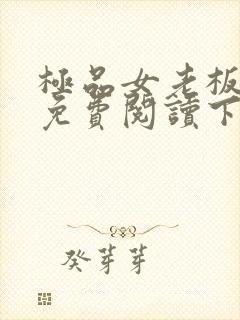 極品女老板
免費閱讀下
癸芽芽